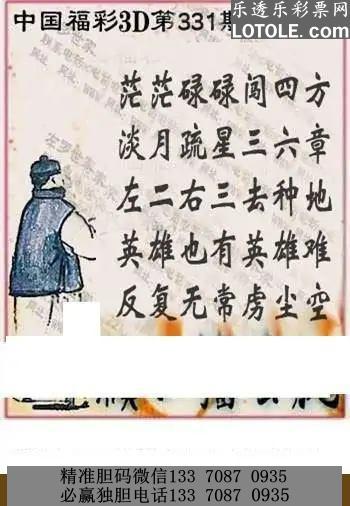 中国福彩3D第331期
乐透乐彩票网
LOTOLE.COM
茫茫碌碌闯四方
淡月疏星三六章
左二右三去种地
英雄也有英雄难
反复无常虏尘空
精准胆码微信133 7087 0935
必赢独胆电话133 7087 0935